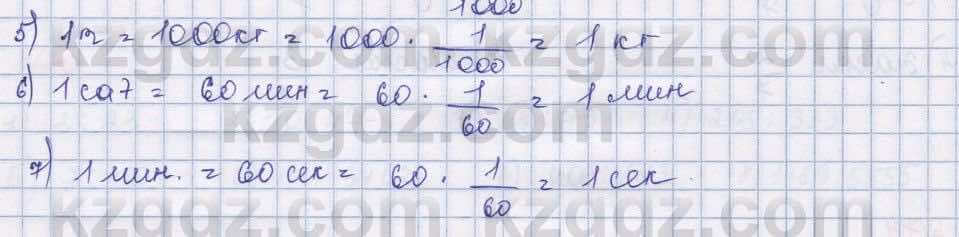 1000
5) 1т = 1000кг = 1000 · 1/1000 = 1 кг
6) 1 сағ = 60 мин = 60 · 1/60 = 1 мин
7) 1 мин. = 60 сек = 60 · 1/60 = 1 сек.
kzgdz.com kzgdz.com
kzgdz.com
kzgdz.com kzgdz.com